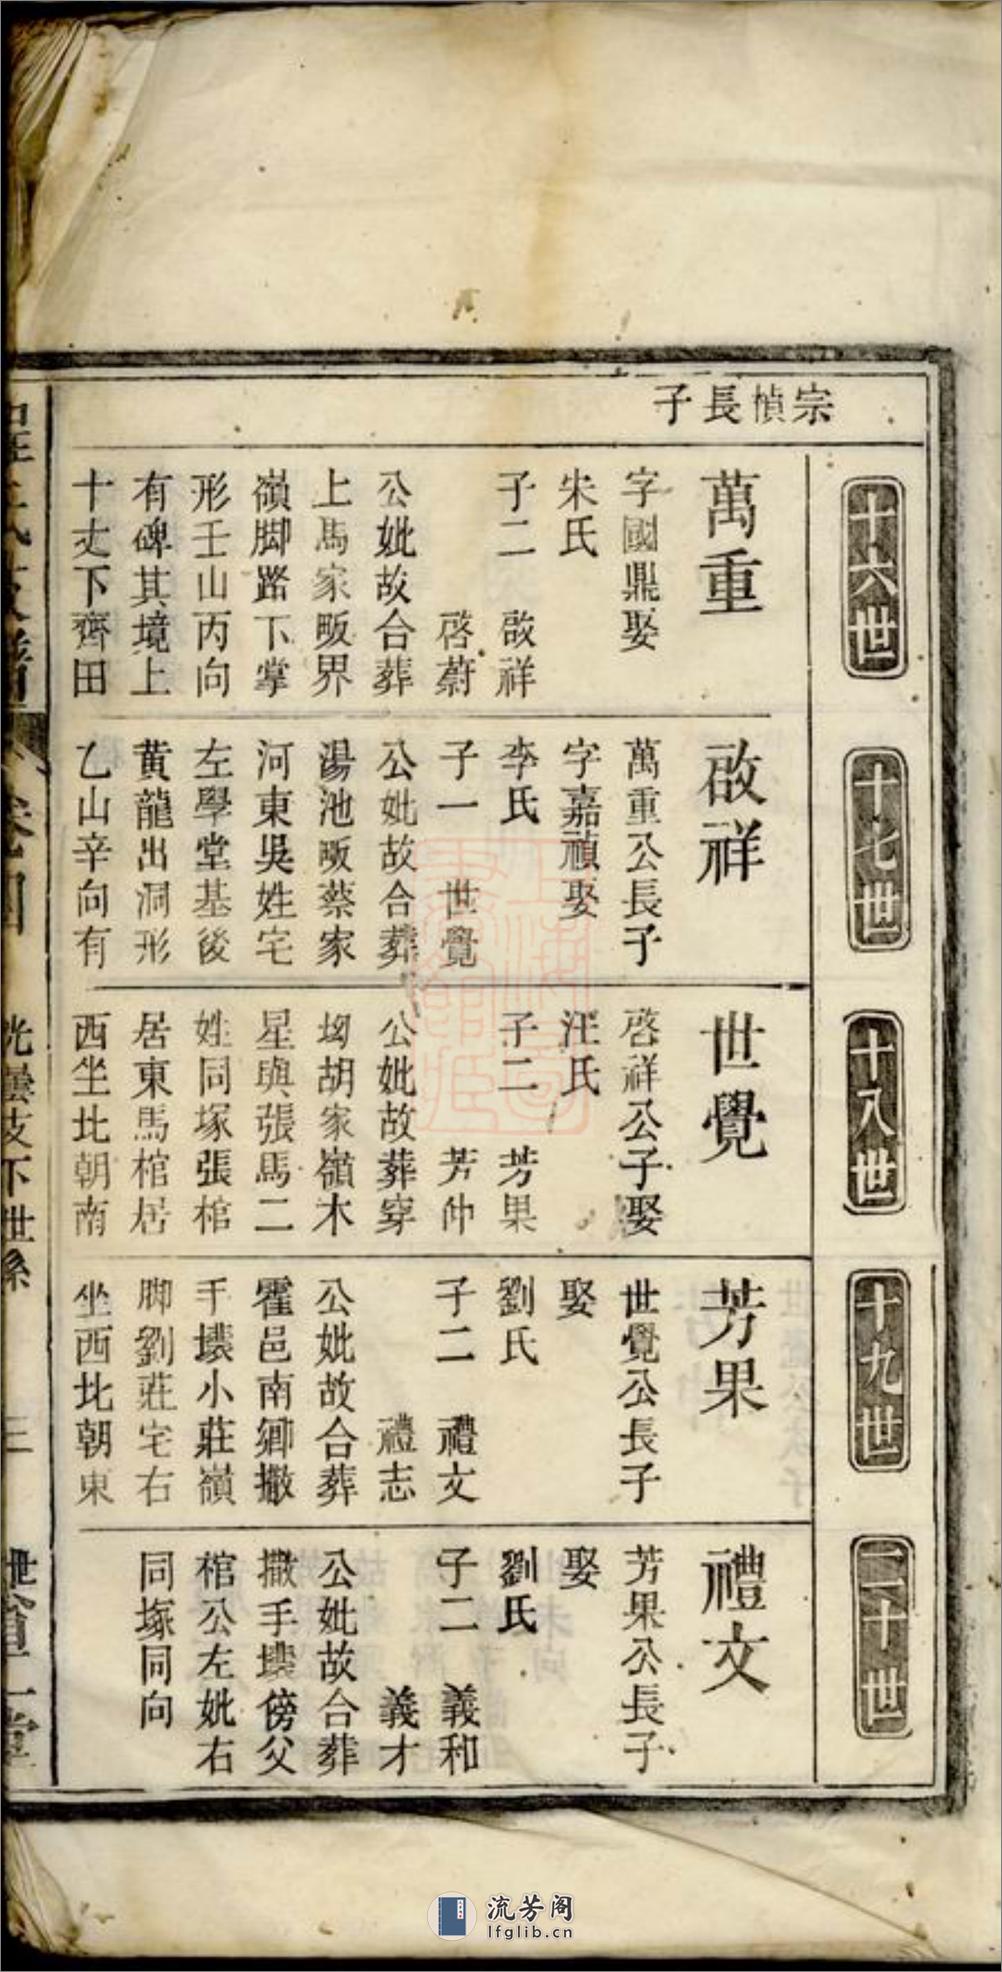 宗楨長子
十六世
萬重
字國鼎娶
朱氏
子二 啟祥
啓蔚
公妣故合葬
上馬家畈界
嶺脚路下掌
形壬山丙向
有碑其境上
十丈下齊田
十七世
啟祥
萬重公長子
字嘉禎娶
李氏
子一 世覺
公妣故合葬
湯池畈蔡家
河東吳姓宅
左學堂基後
黃龍出洞形
乙山辛向有
十八世
世覺
啓祥公子娶
汪氏
子二 芳果
芳仲
公妣故葬穿
坳胡家嶺木
星與張馬二
姓同塚張棺
居東馬棺居
西坐北朝南
十九世
芳果
世覺公長子
娶
劉氏
子二 禮文
禮志
公妣故合葬
霍邑南鄉撒
手壊小莊嶺
脚劉莊宅右
坐西北朝東
二十世
禮文
芳果公長子
娶
劉氏
子二 義和
義才
公妣故合葬
撒手壊傍父
棺公左妣右
同塚同向
卷四
洸曇支下世系
三
流芳阁
lfglib.cn